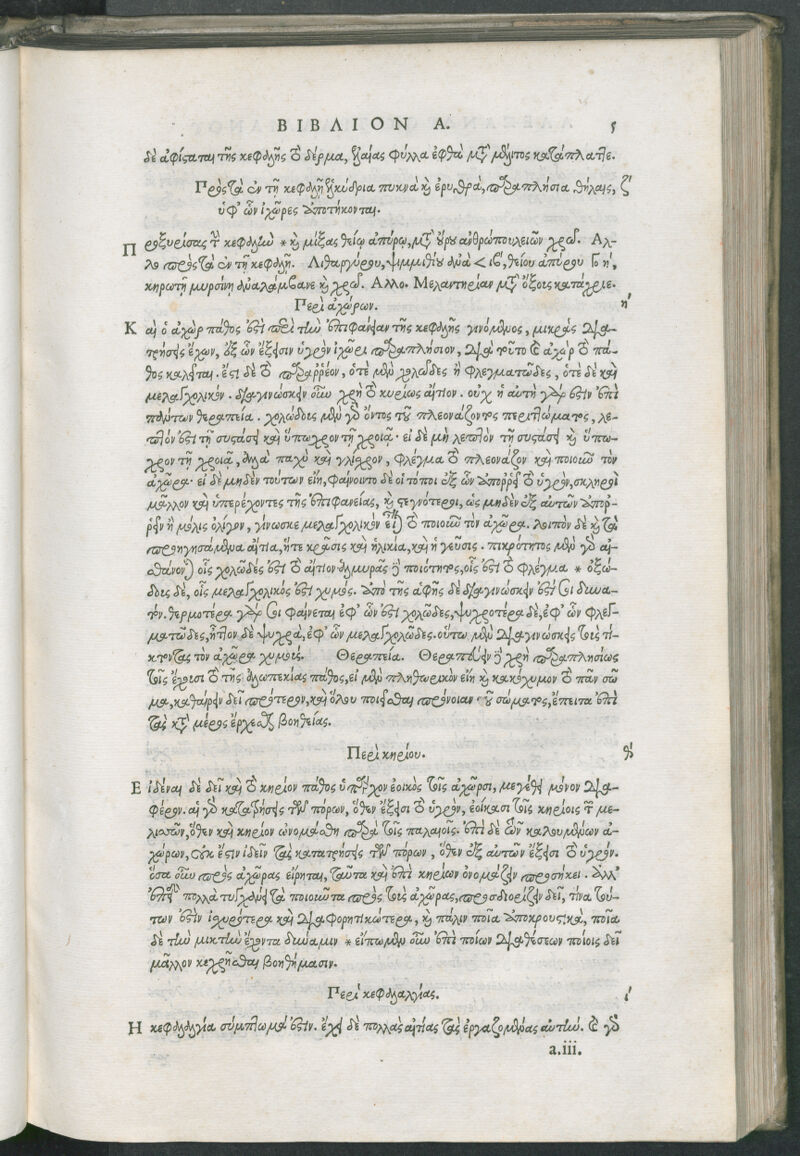 ΒΙΒΛΙΟΝ Α. ϛ
δὲ ἀφίσταται τῆς κεφαλῆς τὸ δέρμα, ἐλαίας φύλλα ἑφθὰ μετὰ μέλιτος κατάπλαττε.
Πρὸς τὰ ἐν τῇ κεφαλῇ ἑλκύδρια πυκνὰ καὶ ἐρυθρὰ, παραπλήσια θήλαις, ζ΄
ὑφ' ὧν ἰχῶρες ἀποτήκονται.
Προξυρίσας τὴν κεφαλὴν * καὶ μίξας θείῳ ἀπύρῳ, μετὰ οὔρου ἀνθρώπου λειῶν χρῶ. Αλ-
λο πρὸς τὰ ἐν τῇ κεφαλῇ. Λιθαργύρου, ψιμμιθίου ἀνὰ < ιβ, θείου ἀπύρου Γο η΄,
κηρωτῇ μυρσίνῃ ἀναλάμβανε καὶ χρῶ. Αλλο. Μελαντηρίαν μετὰ ὄξους κατάχριε.
Περὶ ἀχώρων. η΄
Καὶ ὁ ἀχὼρ πάθος ἐστὶ περὶ τὴν ἐπιφάνειαν τῆς κεφαλῆς γινόμενος, μικρὰς δια-
τρήσεις ἔχων, ἐξ ὧν ἔξεισιν ὑγρὸν ἰχῶρι παραπλήσιον, διὰ τοῦτο καὶ ἀχὼρ τὸ πά-
θος καλεῖται. ἔστι δὲ τὸ παραρρέον, ὁτὲ μὲν χολῶδες ἢ φλεγματῶδες, ὁτὲ δὲ καὶ
μελαγχολικόν. διαγινώσκειν οὖν χρὴ τὸ κυρίως αἴτιον. οὐχ ἡ αὐτὴ γάρ ἐστιν ἐπὶ
πάντων θεραπεία. χολώδους μὲν γὰρ ὄντος τοῦ πλεονάζοντος περιττώματος, λε-
πτόν ἐστι τῇ συστάσει καὶ ὕπωχρον τῇ χροιᾷ. εἰ δὲ μὴ λεπτὸν τῇ συστάσει καὶ ὕπω-
χρον τῇ χροιᾷ, ἀλλὰ παχὺ καὶ γλίσχρον, φλέγμα τὸ πλεονάζον καὶ ποιοῦν τὸν
ἀχῶρα. εἰ δὲ μηδὲν τούτων εἴη, φαίνοιντο δὲ οἱ τόποι ἐξ ὧν ἀπορρεῖ τὸ ὑγρὸν, σκληροὶ
μᾶλλον καὶ ὑπερέχοντες τῆς ἐπιφανείας, καὶ στεγνότεροι, ὡς μηδὲν ἐξ αὐτῶν ἀπορ-
ρεῖν ἢ μόλις ὀλίγον, γίνωσκε μελαγχολικὸν εἶναι τὸ ποιοῦν τὸν ἀχῶρα. λοιπὸν δὲ καὶ τὰ
προηγησάμενα αἴτια, ἥτε κρᾶσις καὶ ἡλικία, καὶ ἡ γεῦσις. πικρότητος μὲν γὰρ αἰ-
σθάνονται οἷς χολῶδές ἐστι τὸ αἴτιον ἁλμυρᾶς δὲ ποιότητος, οἷς ἐστι τὸ φλέγμα * ὀξώ-
δους δὲ, οἷς μελαγχολικός ἐστι χυμός. ἀπὸ τῆς ἁφῆς δὲ διαγινώσκειν ἐστί σοι δυνα-
τόν. θερμοτέρα γάρ σοι φαίνεται ἐφ' ὧν ἐστι χολῶδες, ψυχροτέρα δὲ, ἐφ' ὧν φλεγ-
ματῶδες, ἧττον δὲ ψυχρὰ, ἐφ' ὧν μελαγχολῶδες. οὕτω μὲν διαγινώσκεις τοὺς τί-
κτοντας τὸν ἀχῶρα χυμούς. Θεραπεία. Θεραπεύειν δὲ χρὴ παραπλησίως
τοῖς ἔχουσι τὸ τῆς ἀλωπεκίας πάθος, εἰ μὲν πληθωρικὸν εἴη καὶ κακόχυμον τὸ πᾶν σῶ
μα, καθαίρειν δεῖ πρότερον, καὶ ὅλου ποιεῖσθαι πρόνοιαν τοῦ σώματος, ἔπειτα ἐπὶ
τὰς κατὰ μέρος ἔρχεσθαι βοηθείας.
Περὶ κηρίου. θ΄
Εἰδέναι δὲ δεῖ καὶ τὸ κηρίον πάθος ὑπάρχον ἐοικὸς τοῖς ἀχῶρσι, μεγέθει μόνον δια-
φέρον. αἱ γὰρ κατατρήσεις τῶν πόρων, ὅθεν ἔξεισι τὸ ὑγρὸν, ἐοίκασι τοῖς κηρίοις τῶν με-
λισσῶν, ὅθεν καὶ κηρίον ὠνομάσθη παρὰ τοῖς παλαιοῖς. ἐπὶ δὲ τῶν καλουμένων ἀ-
χώρων, οὐκ ἔστιν ἰδεῖν τὰς κατατρήσεις τῶν πόρων, ὅθεν ἐξ αὐτῶν ἔξεισι τὸ ὑγρόν.
ὅσα οὖν πρὸς ἀχῶρας εἴρηται, ταῦτα καὶ ἐπὶ κηρίων ὀνομάζειν προσήκει. ἀλλ'
ἐπεὶ πολλὰ τυγχάνει τὰ ποιοῦντα πρὸς τοὺς ἀχῶρας, προσδιορίζειν δεῖ, τίνα τού-
των ἐστὶν ἰσχυρότερα καὶ διαφορητικώτερα, καὶ πάλιν ποῖα ἀποκρουστικὰ, ποῖα
δὲ τὴν μικτὴν ἔχοντα δύναμιν * εἴπωμεν οὖν ἐπὶ ποίων διαθέσεων ποίοις δεῖ
μᾶλλον κεχρῆσθαι βοηθήμασιν.
Περὶ κεφαλαλγίας. ι΄
Η κεφαλαλγία σύμπτωμά ἐστιν. ἔχει δὲ πολλὰς αἰτίας τὰς ἐργαζομένας αὐτήν. καὶ γὰρ
a.iii.